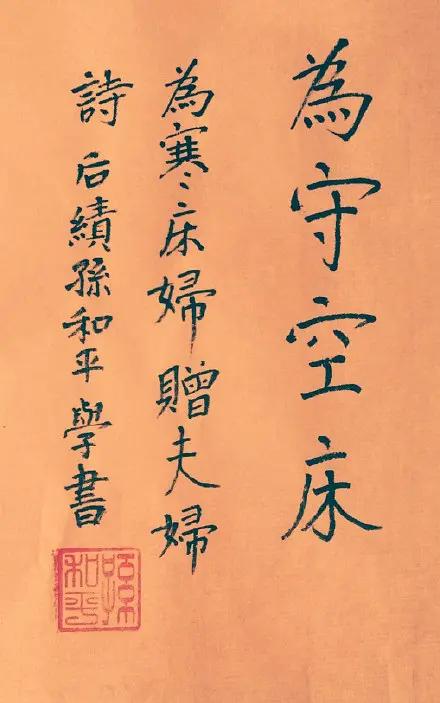 為守空床
為寒床婦贈夫婦
詩 后績孫和平學書
孫和平